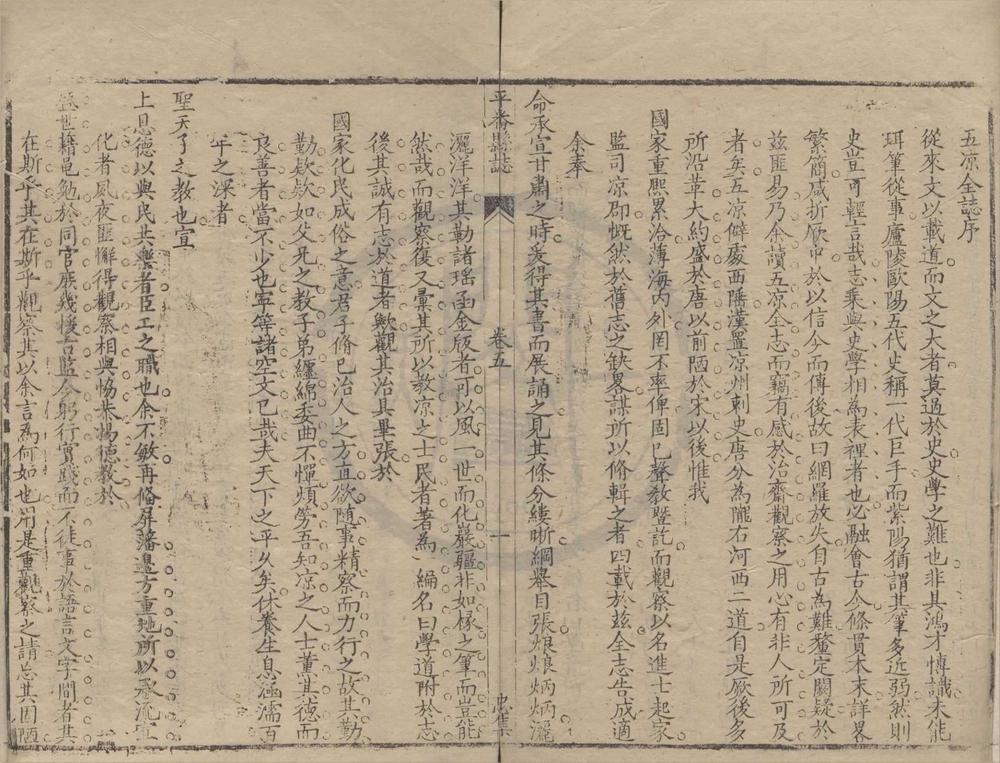 五凉全誌序
從來文以載道而文之大者莫過於史史學之難也非其鴻才博識未能
珥筆從事廬陵歐陽五代史稱一代巨手而紫陽猶謂其筆多近弱然則
史豈可輕言哉志乗與史學相為表裡者也必融會古今條貫本末詳畧
繁簡咸折厥中於以信今而傳後故曰網羅放失自古為難釐定闕疑於
兹匪易乃余讀五凉全志而竊有感於治齋觀察之用心有非人所可及
者矣五凉僻處西陲漢置凉州刺史唐分為隴右河西二道自是厥後多
所沿革大約盛於唐以前陋於宋以後惟我
國家重熙累洽薄海内外罔不率俾固已聲敎暨訖而觀察以名進士起家
監司凉郡慨然於舊志之缺畧謀所以脩輯之者四載於兹全志告成適
余奉
命承宣甘肅之時爰得其書而展誦之見其條分縷晰綱舉目張烺烺炳炳灑
平番縣誌
卷五
一
忠集
灑洋洋其勒諸瑶函金版者可以風一世而化巖疆非如椽之筆而豈能
然哉而觀察復又彚其所以教凉之士民者著為一編名曰學道附於志
後其誠有志於道者歟觀其治具畢張於
國家化民成俗之意君子脩已治人之方直欲随事精察而力行之故其勤
勤欵欵如父兄之教子弟纏綿委曲不憚煩勞吾知凉之人士董其德而
良善者當不少也寧等諸空文已哉夫天下之平久矣休養生息涵濡百
年之深者
聖天子之教也宣
上恩德以與民共樂者臣工之職也余不敏再偹屏藩邊方重地所以承流宣
化者夙夜匪懈得觀察相與恊恭揚德教於
盛世藉黽勉於同官庶幾援古監今躬行實踐而不徒事於語言文字間者其
在斯乎其在斯乎觀察其以余言為何如也用是重觀察之請忘其固陋